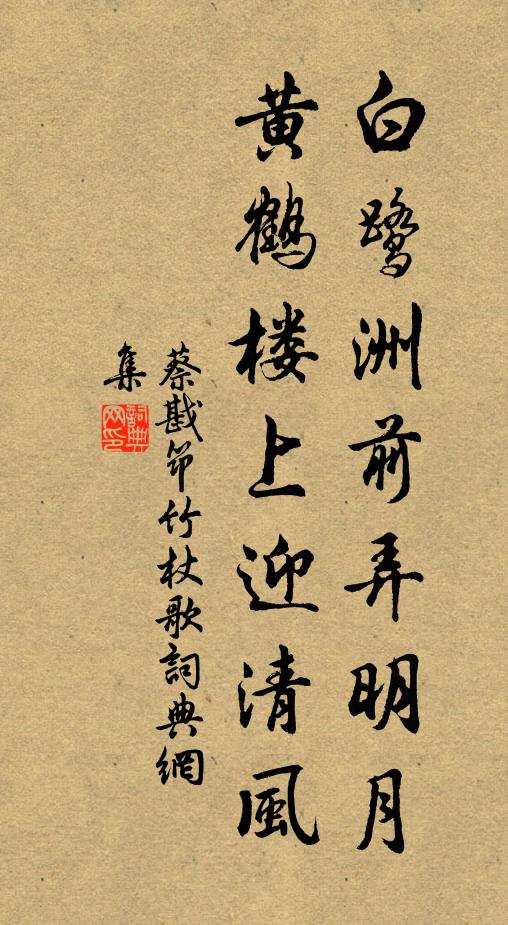 白鹭洲前弄明月
黄鹤楼上迎清風
蔡戡笻竹杖歌詞典網
集
詞典
网印